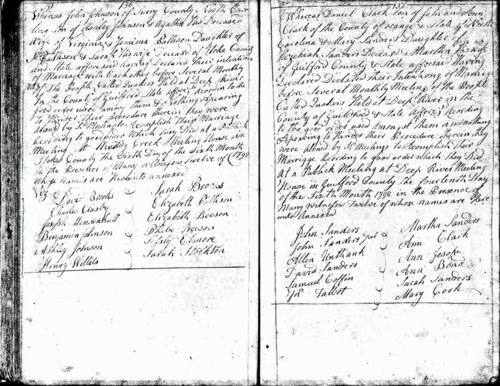 136
Whereas John Johnson of Surry County North Caro
lina Son of Charley Johnson & Agatha his Deceased
Wife of Virginia & Jemima Pattison Daughter of
Pattison & Sarah his wife Deceased of Stokes County
and State aforesaid having Declared their intentions
of Marriage with Each other before Several Monthly
of the People Called Quakers Held at Deep River
In the County of Guilford State afores. according to the
good order used among them & nothing appearing
to Hinder their proceeding therein they were
allowed by sd. Meetings to accomplish their Marriage
according to good order which they Did at a Publick
Meeting At Muddy Creek Meeting House in
Stokes County the Sixth Day of the Sixth Month
in the Presence of Many witnesses Twelve of
whose names are hereunto annexed
David Brooks Sarah Brooks
Charles Clash Elizabeth Pattison
Joseph Elizabeth Beeson
Benjamin Johnson Phebe Beeson
Ashley Johnson Elmore
Henry Willits Sarah Stockton
137
Whereas Daniel Clark Son of John and Ann
Clark of the County of Orange & State of North
Carolina & Mary Sanders Daughter of
Hezekiah Sanders Deceased & Martha his wife
of Guilford County & State aforesaid Having
Declared Declared their Intentions of Marriage
before Several Monthly Meetings of the People
Called Quakers Held at Deep River in the
County of Guilford & State afores. According
to the good order used Among them & nothing
Appearing to Hinder their proceeding therein they
were allowed by sd. Meetings to Accomplish their
Marriage According to good order which they Did
At a Publick Meeting at Deep River Meeting
House in Guilford County the Fourteenth Day
of the Sixth Month 1792 in the Presence of
Many witnesses Twelve of whose names are Here
unto Annexed
John Sanders Martha Sanders
John Sanders Jur Ann Clark
Allen Unthank Ann Jessop
David Sanders Ann Bond
Samuel Coffin Sarah Sanders
Jn. Talbot Mary Cook